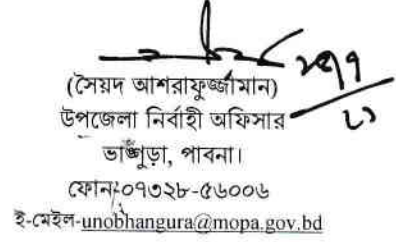 (সৈয়দ আশরাফুজ্জামান)
উপজেলা নির্বাহী অফিসার
ভাঙ্গুড়া, পাবনা।
ফোন-০৭৩২৮-৫৬০০৬
ই-মেইল-unobhangura@mopa.gov.bd